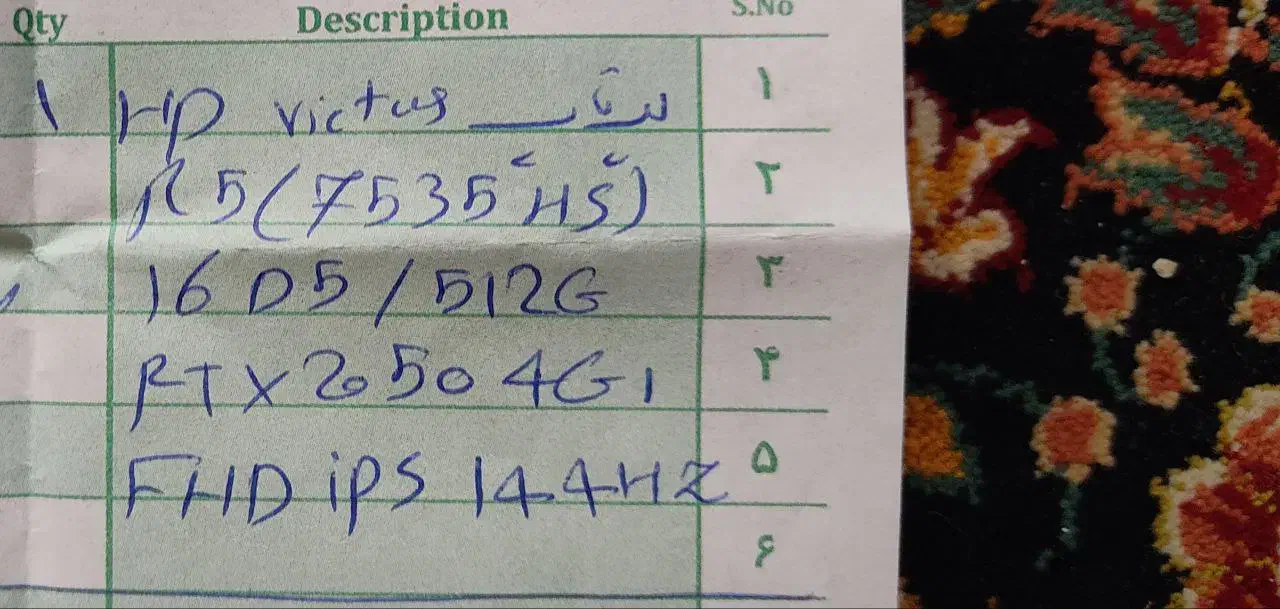 Qty Description S.No
۱ HP victus لپتاپ ۱
R5 (7535 HS) ۲
16 D5 / 512G ۳
RTX 2050 4G ۴
FHD ips 144HZ ۵
۶